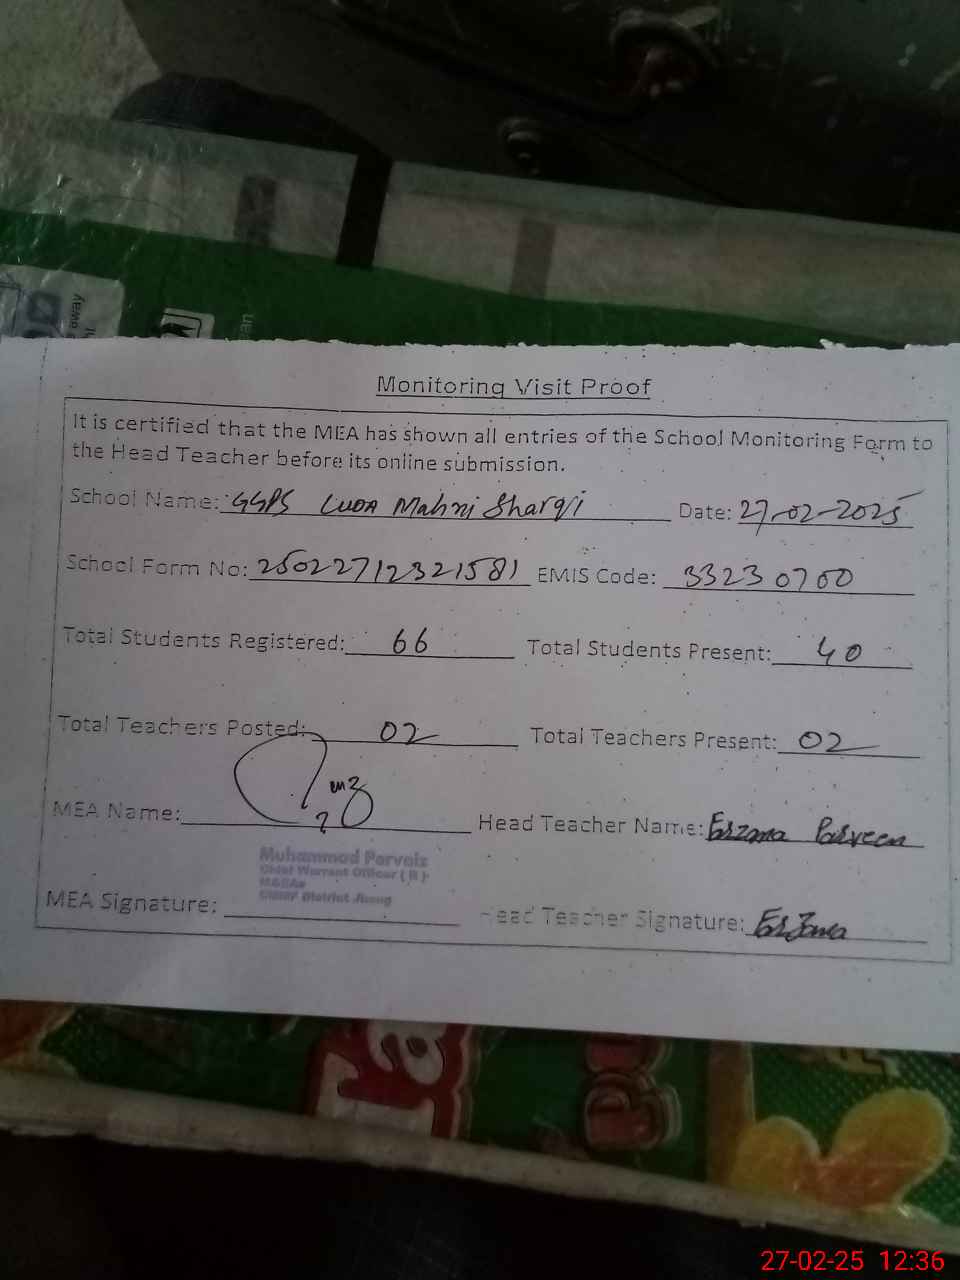 away
an
Monitoring Visit Proof
It is certified that the MEA has shown all entries of the School Monitoring Form to
the Head Teacher before its online submission.
School Name: GGPS LUDA Mahni Sharqi Date: 27-02-2025
School Form No: 25022712321581 EMIS Code: 33230700
Total Students Registered: 66 Total Students Present: 40
Total Teachers Posted: 02 Total Teachers Present: 02
MEA Name: Head Teacher Name: Farzana Parveen
Muhammad Parvaiz
Chief Warrant Officer (R)
MEA Signature: Head Teacher Signature: Farzana
District Jhang
27-02-25 12:36